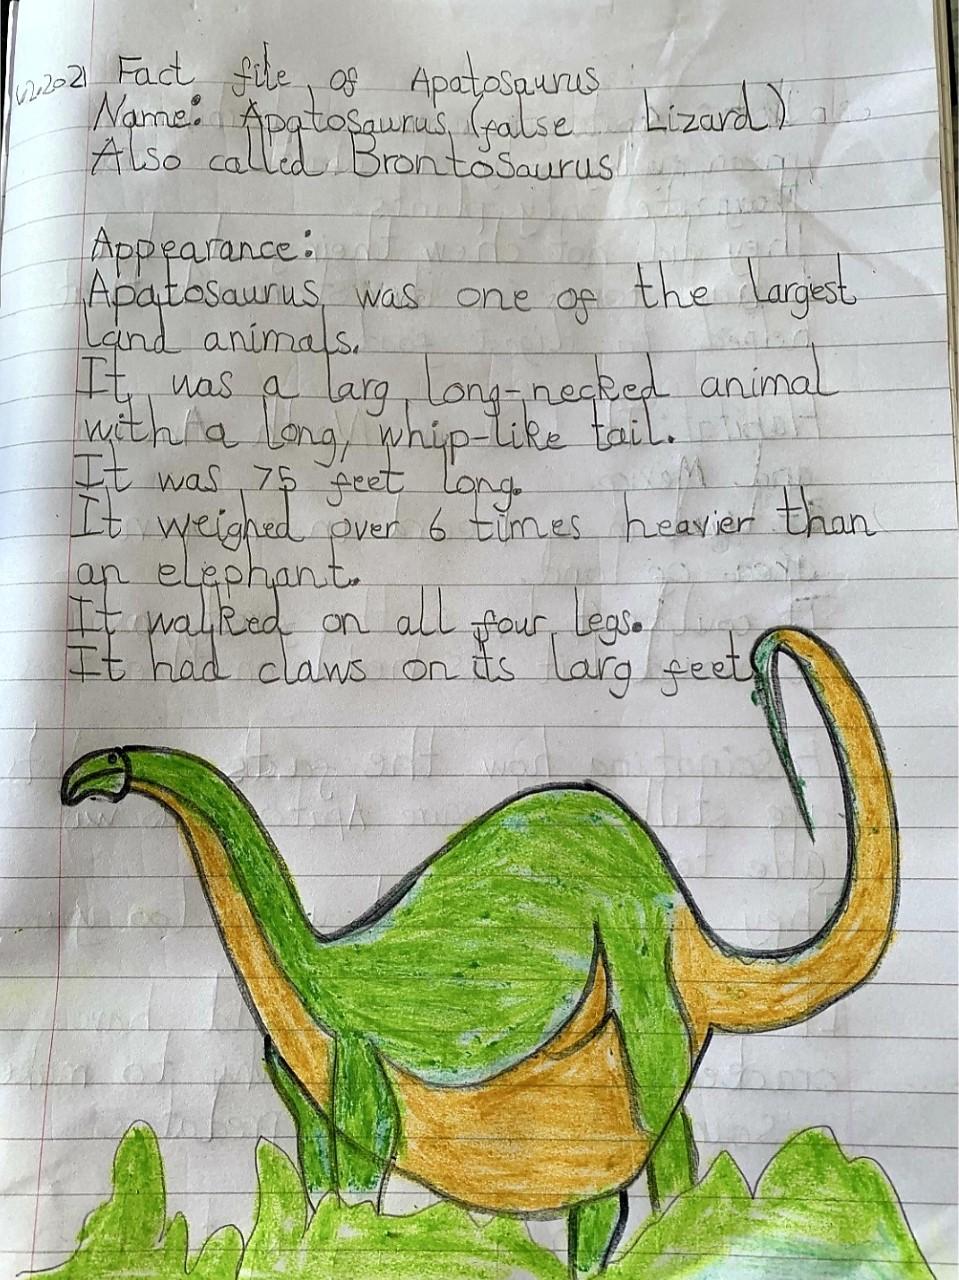 Fact file of Apatosaurus
Name: Apatosaurus (false Lizard)
Also called Brontosaurus
Appearance:
Apatosaurus was one of the largest
land animals.
It was a larg long-necked animal
with a long, whip-like tail.
It was 75 feet long.
It weighed over 6 times heavier than
an elephant.
It walked on all four legs.
It had claws on its larg feet